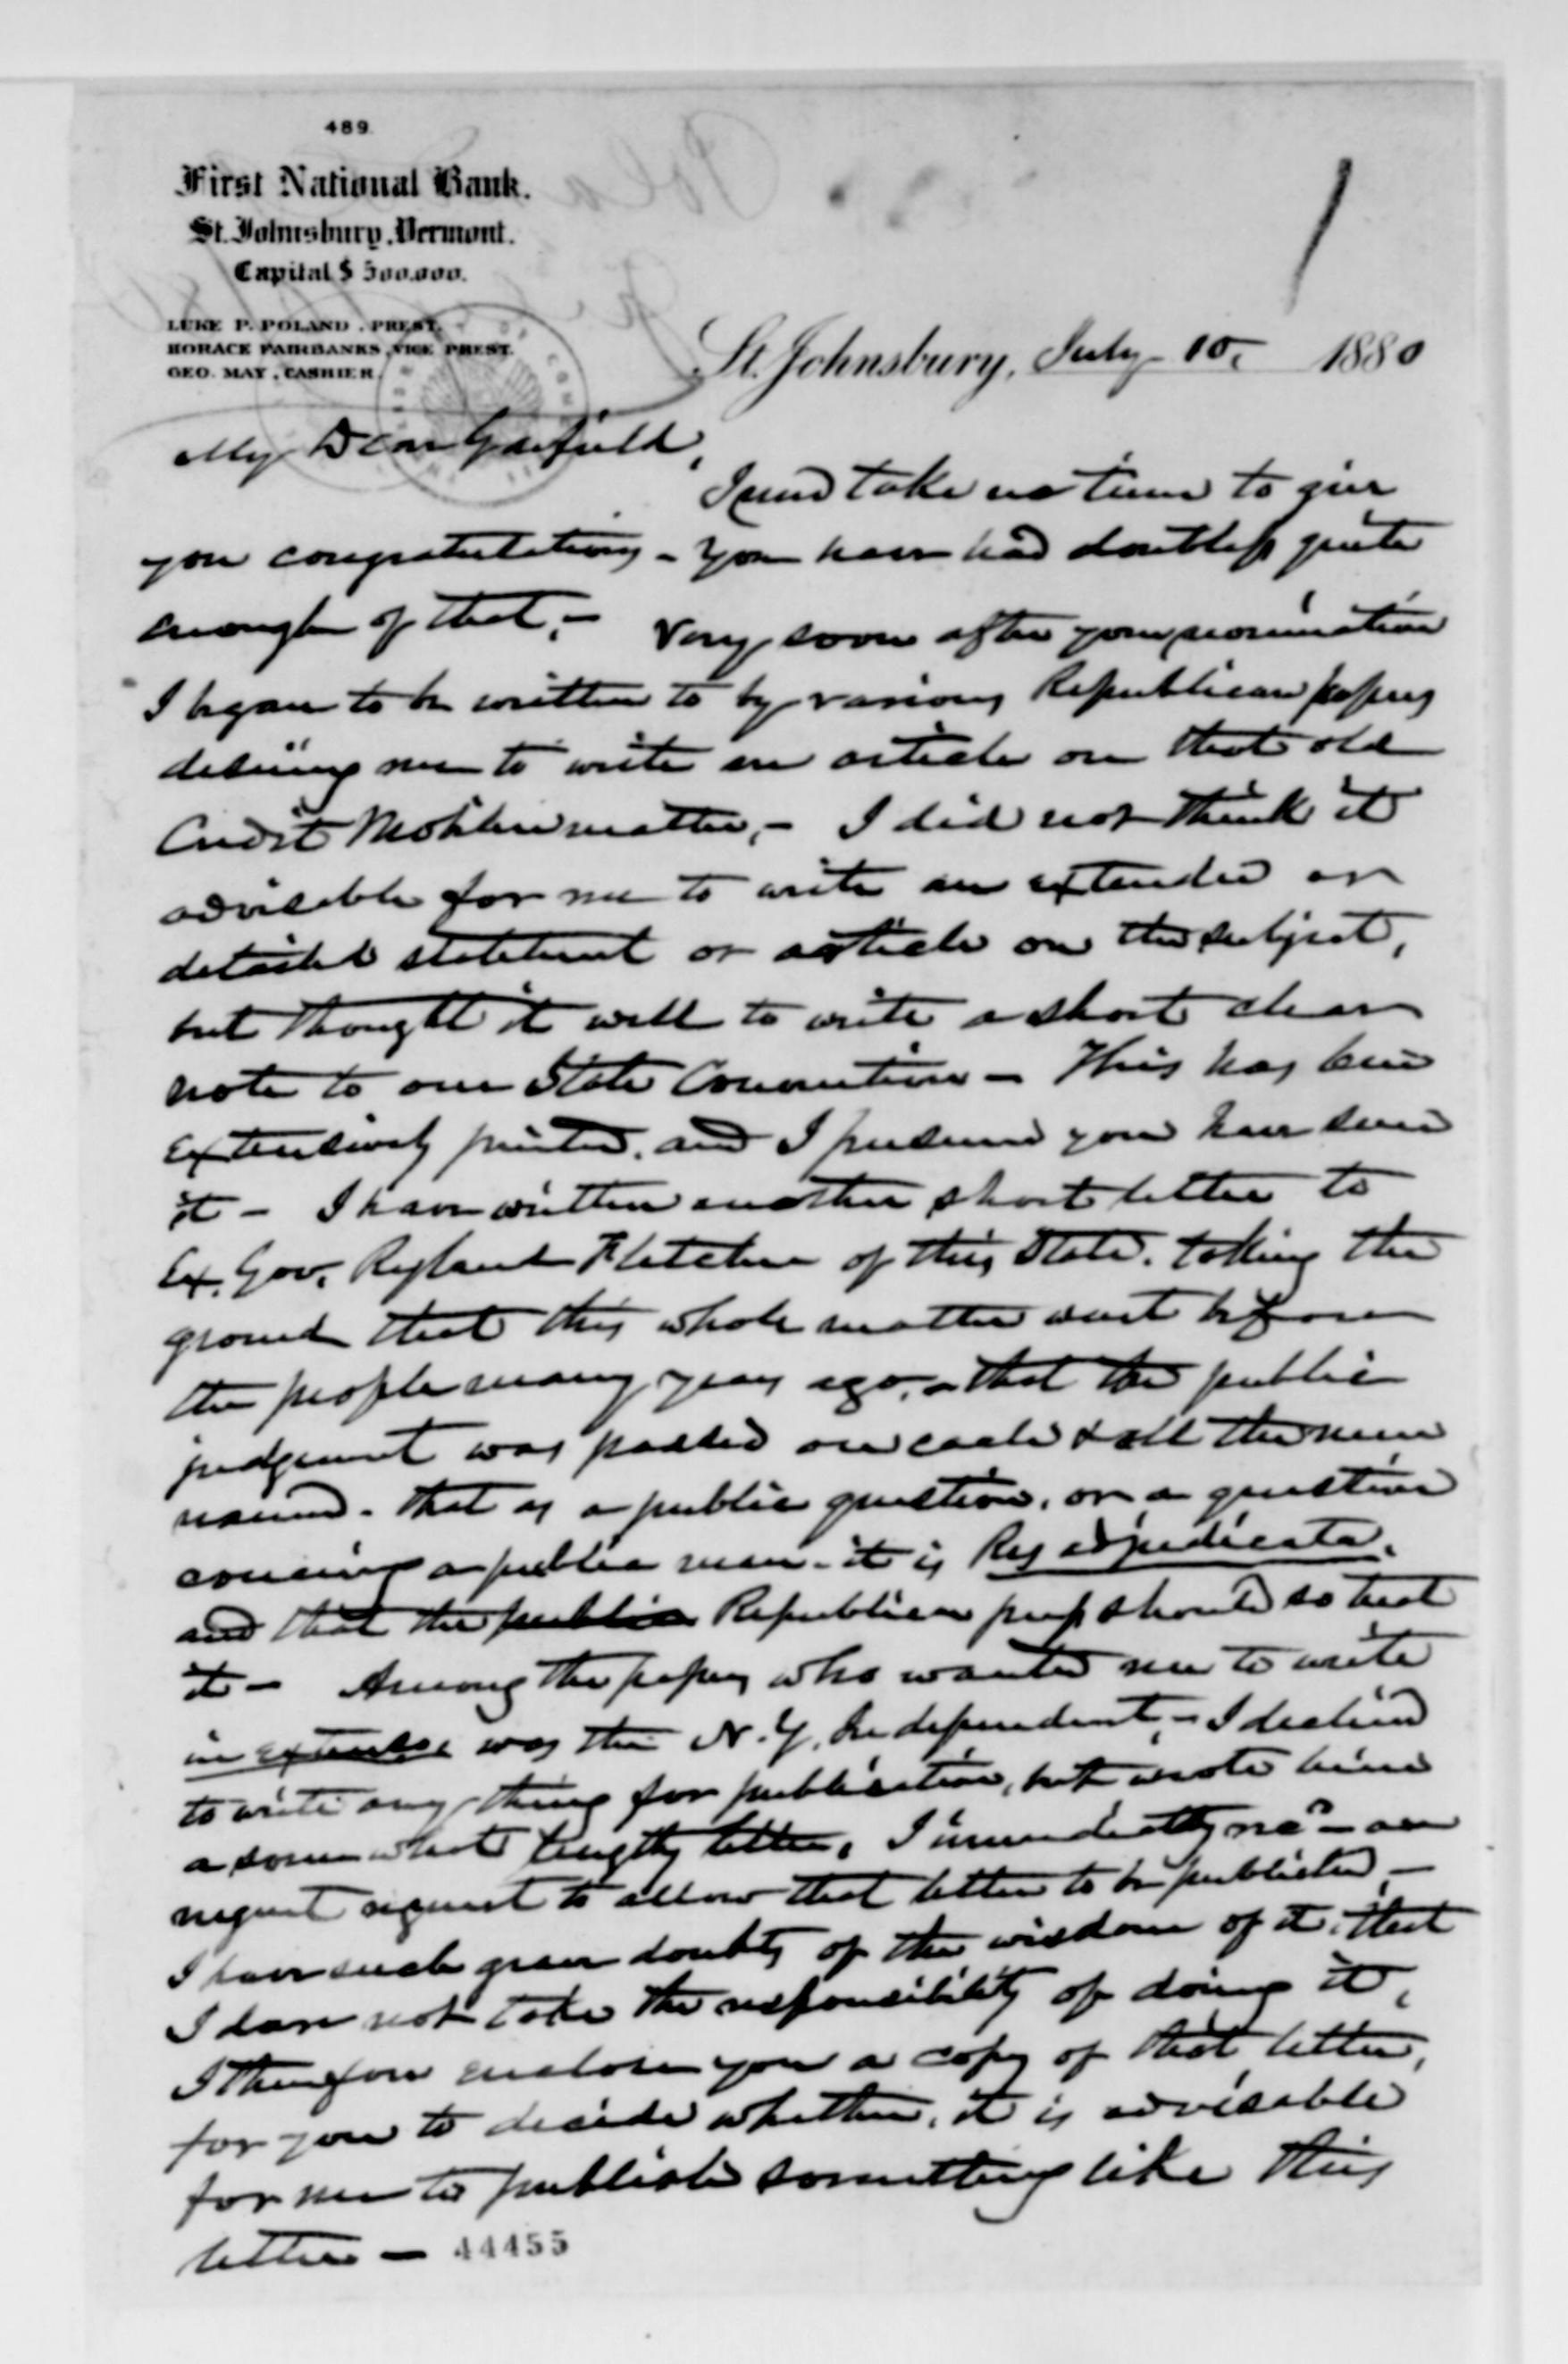 489
First National Bank.
St. Johnsbury, Vermont.
Capital $ 500.000.
LUKE P. POLAND, PREST.
HORACE FAIRBANKS, VICE PREST.
GEO. MAY, CASHIER.
St. Johnsbury, July 10, 1880
My Dear Garfield,
I need take no time to give
you congratulations - You have had doubtless quite
enough of that, - Very soon after your nomination
I began to be written to by various Republican papers
desiring me to write an article on that old
Credit Mobilier matter, - I did not think it
advisable for me to write an extended or
detailed statement or article on the subject,
but thought it well to write a short clear
note to our State Convention - This has been
extensively printed, and I presume you have seen
it - I have written another short letter to
Ex. Gov. Ryland Fletcher of this State, taking the
ground that this whole matter went before
the people many years ago, - that the public
judgment was passed on each & all the men
named. that as a public question, or a question
concerning a public man - it is Res adjudicata,
and that the public Republican press should so treat
it - Among the papers who wanted me to write
in extenso was the N.Y. Independent, - I declined
to write any thing for publication, but wrote him
a somewhat lengthy letter, I immediately recd - an
urgent request to allow that letter to be published -
I have such grave doubts of the wisdom of it, that
I dare not take the responsibility of doing it,
I therefore enclose you a copy of that letter,
for you to decide whether, it is advisable
for me to publish something like this
letter - 44455